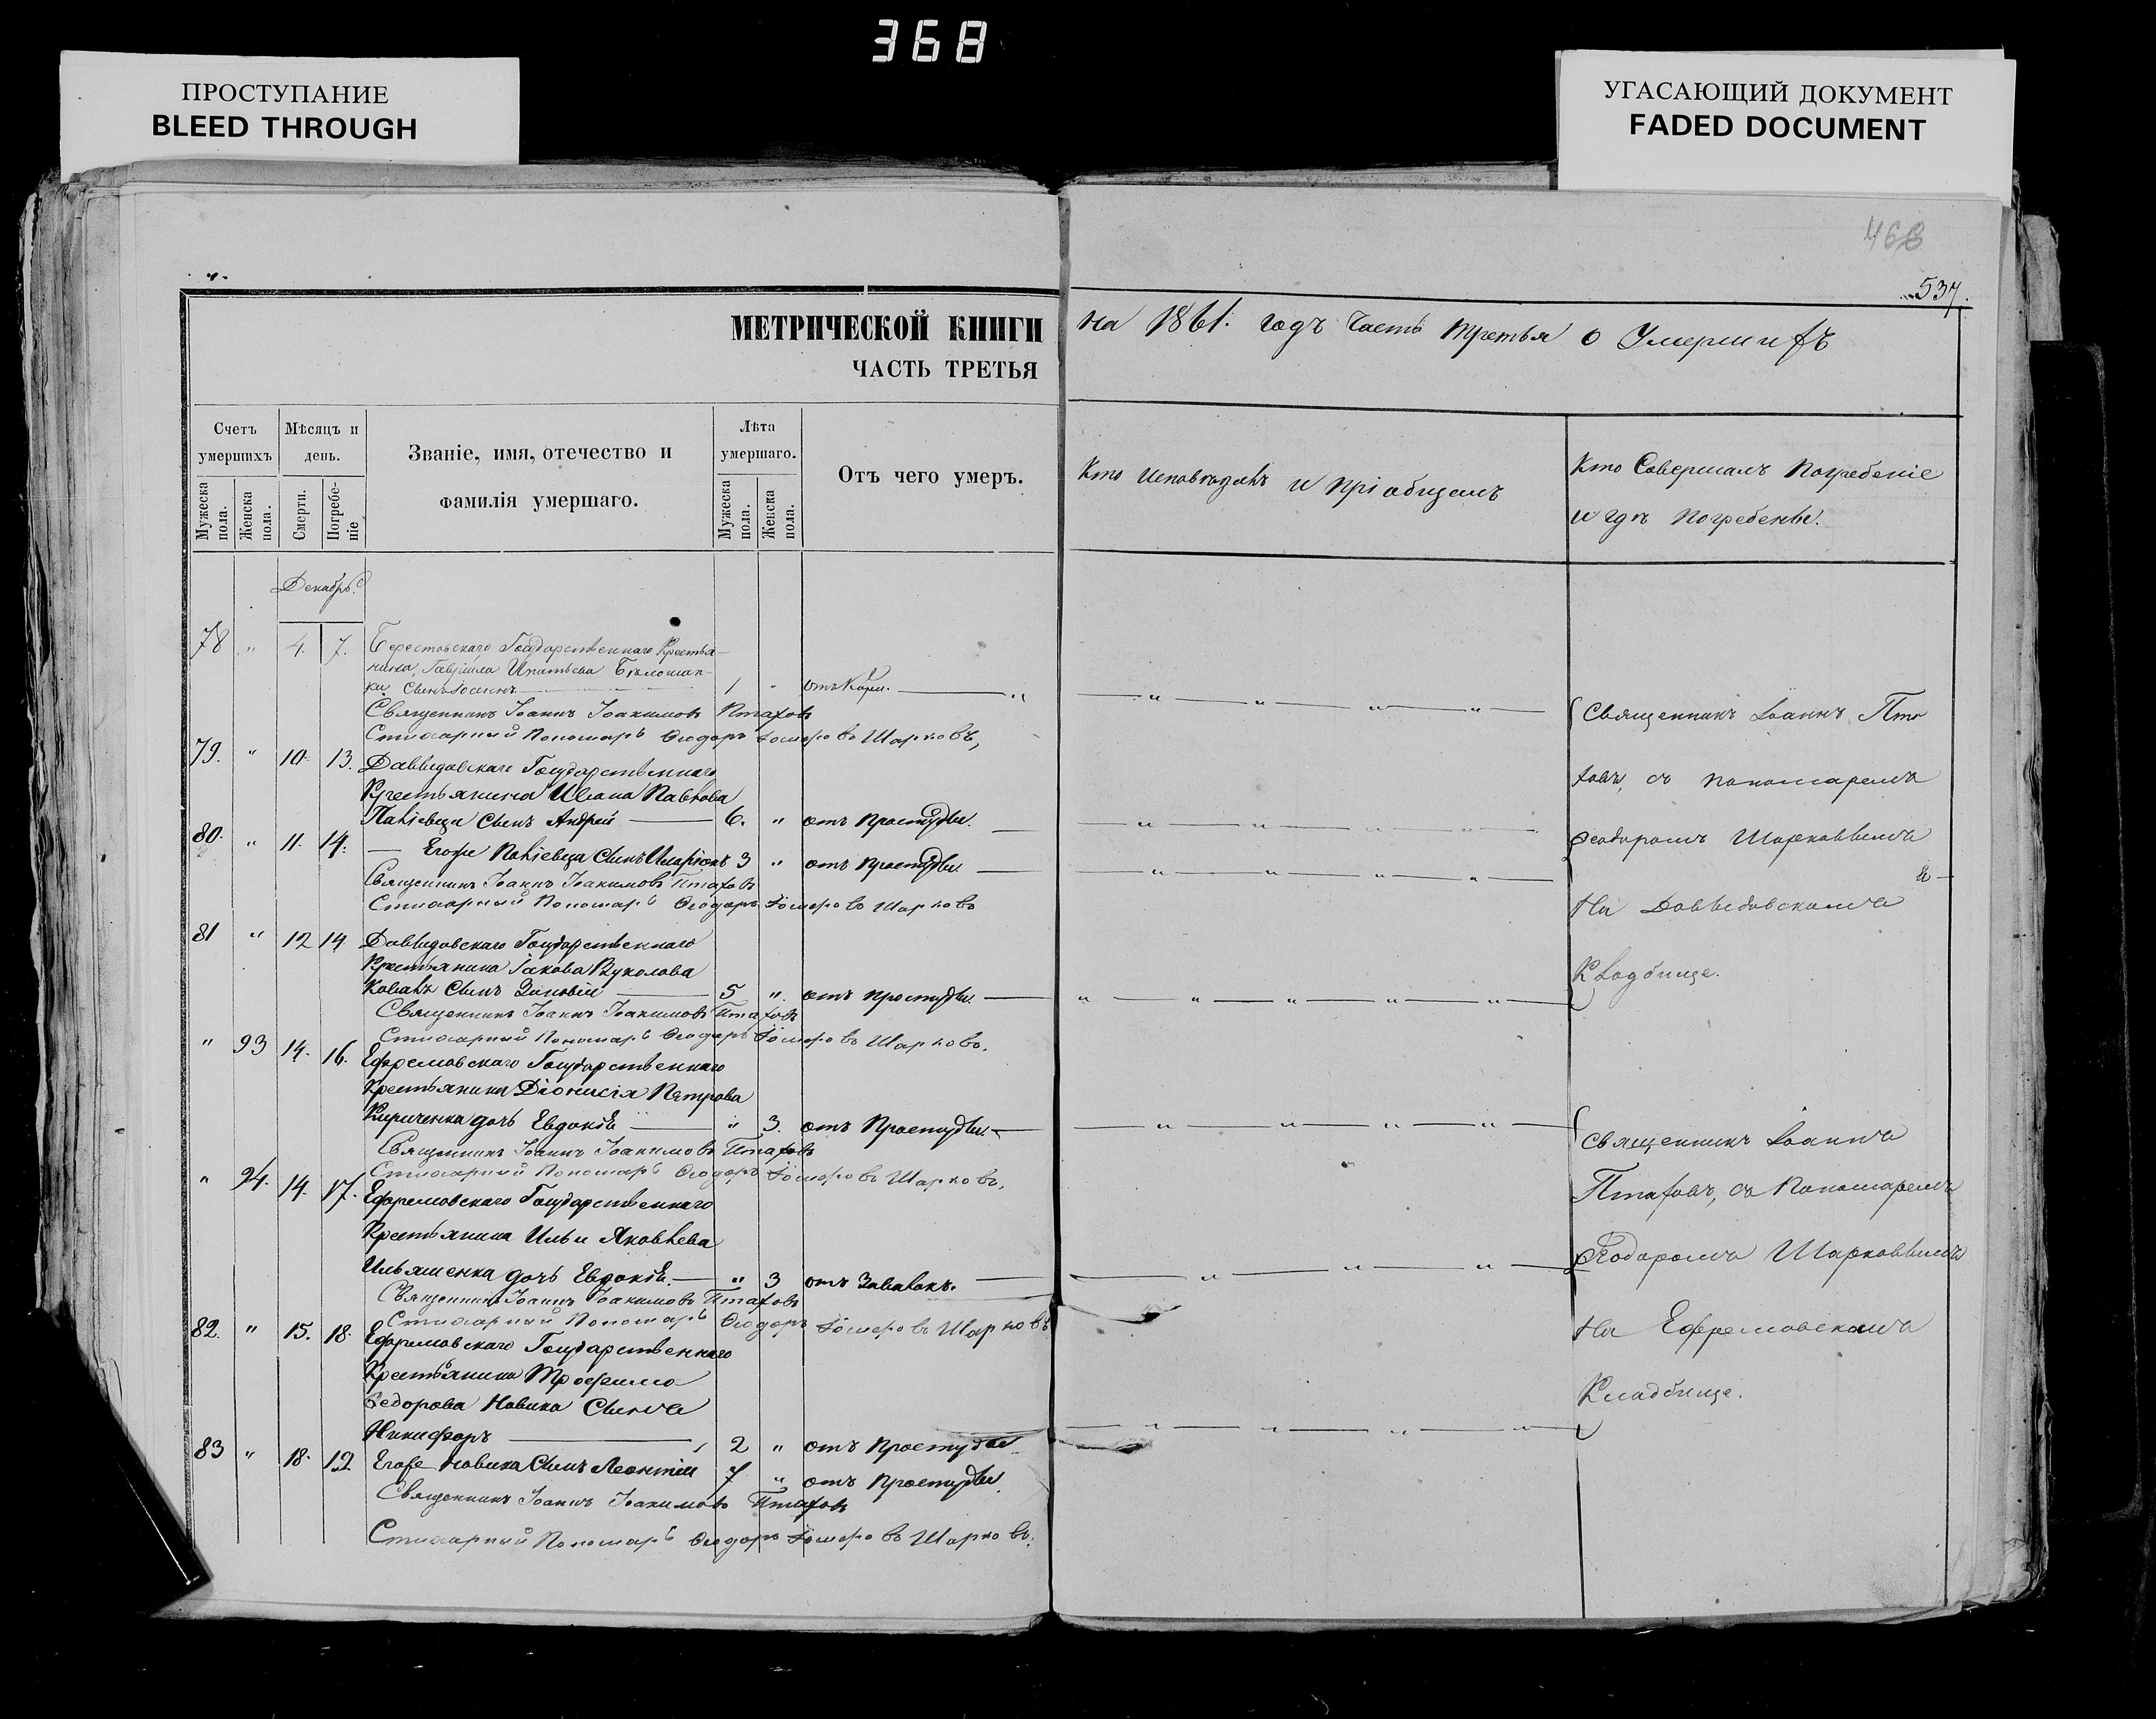 368
ПРОСТУПАНИЕ
BLEED THROUGH
УГАСАЮЩИЙ ДОКУМЕНТ
FADED DOCUMENT
537.
МЕТРИЧЕСКОЙ КНИГИ на 1861. годъ Часть третья о Умершихъ
ЧАСТЬ ТРЕТЬЯ
Счетъ умершихъ
Мужеска пола.
Женска пола.
Мѣсяцъ и день.
Смерти.
Погребеніе
Званіе, имя, отечество и
фамилія умершаго.
Лѣта умершаго.
Мужеска пола.
Женска пола.
Отъ чего умеръ.
Кто исповѣдалъ и пріобщалъ
Кто Совершалъ Погребеніе
и гдѣ Погребены.
Декабрь
78 " 4. 7. Берестовскаго Государственнаго Крестья-
нина, Гавріила Игнатьева
Сынъ 1 " отъ Кори.
Священникъ Іоаннъ Іоакимовъ Птаховъ
Стихарный Пономарь Ѳеодоръ Шарковъ,
79. " 10. 13. Давыдовскаго Государственнаго
Крестьянина Ивана Павлова
Сынъ Андрей 6. " отъ Простуды.
80. " 11. 14. Егора Сынъ Иларіонъ 3 " отъ Простуды
Священникъ Іоаннъ Іоакимовъ Птаховъ
Стихарный Пономарь Ѳеодоръ Шарковъ
81 " 12 14 Давыдовскаго Государственнаго
Крестьянина Іакова Вуколова
Коваля Сынъ Зиновій 5 " отъ простуды.
Священникъ Іоаннъ Іоакимовъ Птаховъ
Стихарный Пономарь Ѳеодоръ Шарковъ.
" 93 14. 16. Ефремовскаго Государственнаго
Крестьянина Діонисія Петрова
Кириченка дочь Евдокія " 3. отъ Простуды.
Священникъ Іоаннъ Іоакимовъ Птаховъ
Стихарный Пономарь Ѳеодоръ Шарковъ,
" 94. 14. 17. Ефремовскаго Государственнаго
Крестьянина Ильи Яковлева
Ильяшенка дочь Евдокія. " 3 отъ
Священникъ Іоаннъ Іоакимовъ Птаховъ
Стихарный Пономарь Ѳеодоръ Шарковъ
82. " 15. 18. Ефремовскаго Государственнаго
Крестьянина Трофима
Ѳедорова Новика Сынъ
Никифоръ 2 " отъ Простуды
83 " 18. 12 Егора Новика Сынъ Леонтій 7 " отъ Простуды.
Священникъ Іоаннъ Іоакимовъ Птаховъ
Стихарный Пономарь Ѳеодоръ Шарковъ.
Священникъ Іоаннъ Пта
ховъ, съ пономаремъ
Ѳеодоромъ Шарковымъ
На Давыдовскомъ
Кладбище.
Священникъ Іоаннъ
Птаховъ, съ Пономаремъ
Ѳеодоромъ Шарковымъ
На Ефремовскомъ
Кладбище.